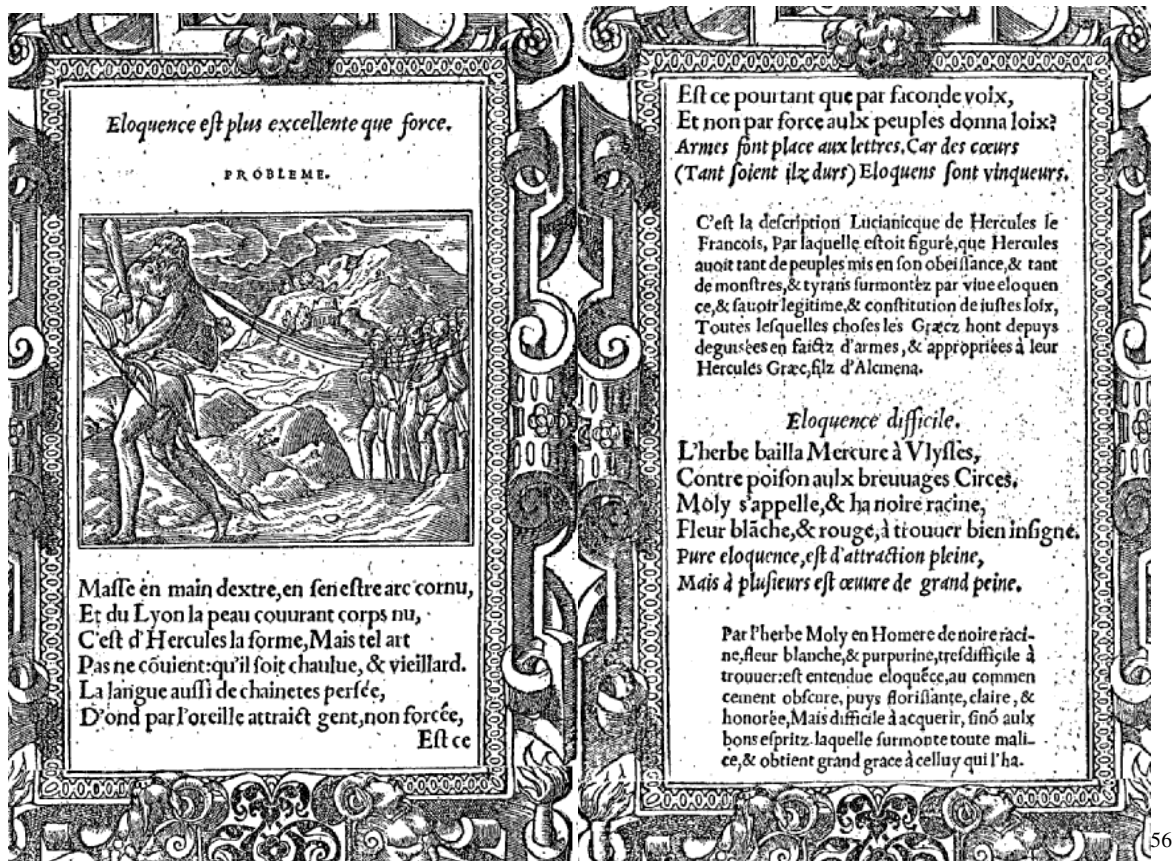 Eloquence est plus excellente que force.
PROBLEME.
Masse en main dextre, en senestre arc cornu,
Et du Lyon la peau couurant corps nu,
C'est d'Hercules la forme, Mais tel art
Pas ne cõuient: qu'il soit chaulue, & vieillard.
La langue aussi de chainetes persée,
D'ond par l'oreille attraict gent, non forcée,
Est ce
Est ce pourtant que par faconde voix,
Et non par force aulx peuples donna loix?
Armes font place aux lettres. Car des cœurs
(Tant soient ilz durs) Eloquens sont vinqueurs.
C'est la description Lucianicque de Hercules le
Francois, Par laquelle estoit figuré, que Hercules
auoit tant de peuples mis en son obeissance, & tant
de monstres, & tyrans surmontez par viue eloquen
ce, & sauoir legitime, & constitution de iustes loix,
Toutes lesquelles choses les Græcz hont depuys
deguisées en faictz d'armes, & appropriées à leur
Hercules Græc, filz d'Alcmena.
Eloquence difficile.
L'herbe bailla Mercure à Vlysses,
Contre poison aulx breuuages Circes.
Moly s'appelle, & ha noire racine,
Fleur blãche, & rouge, à trouuer bien insigne.
Pure eloquence, est d'attraction pleine,
Mais à plusieurs est œuure de grand peine.
Par l'herbe Moly en Homere de noire raci-
ne, fleur blanche, & purpurine, tresdifficile à
trouuer: est entendue eloquẽce, au commen
cement obscure, puys florissante, claire, &
honorée, Mais difficile à acquerir, sinõ aulx
bons espritz. laquelle surmonte toute mali-
ce, & obtient grand grace à celluy qui l'ha.
56